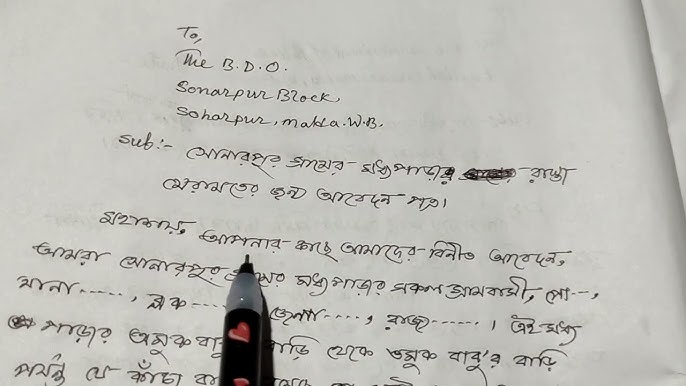 To,
The B.D.O.
Sonarpur Block,
Soharpur, Malda. W.B.
Sub:- সোনারপুর গ্রামের মধ্যপাড়ার রাস্তা
মেরামতের জন্য আবেদন পত্র।
মহাশয়, আপনার কাছে আমাদের বিনীত আবেদন,
আমরা সোনারপুর গ্রামের মধ্যপাড়ার সকল গ্রামবাসী, পো---,
থানা ....., ব্লক ...... জেলা ....., রাজ্য ...... । এই মধ্য
পাড়ার অমুক বাবু বাড়ি থেকে তমুক বাবু'র বাড়ি
পর্যন্ত যে কাঁচা